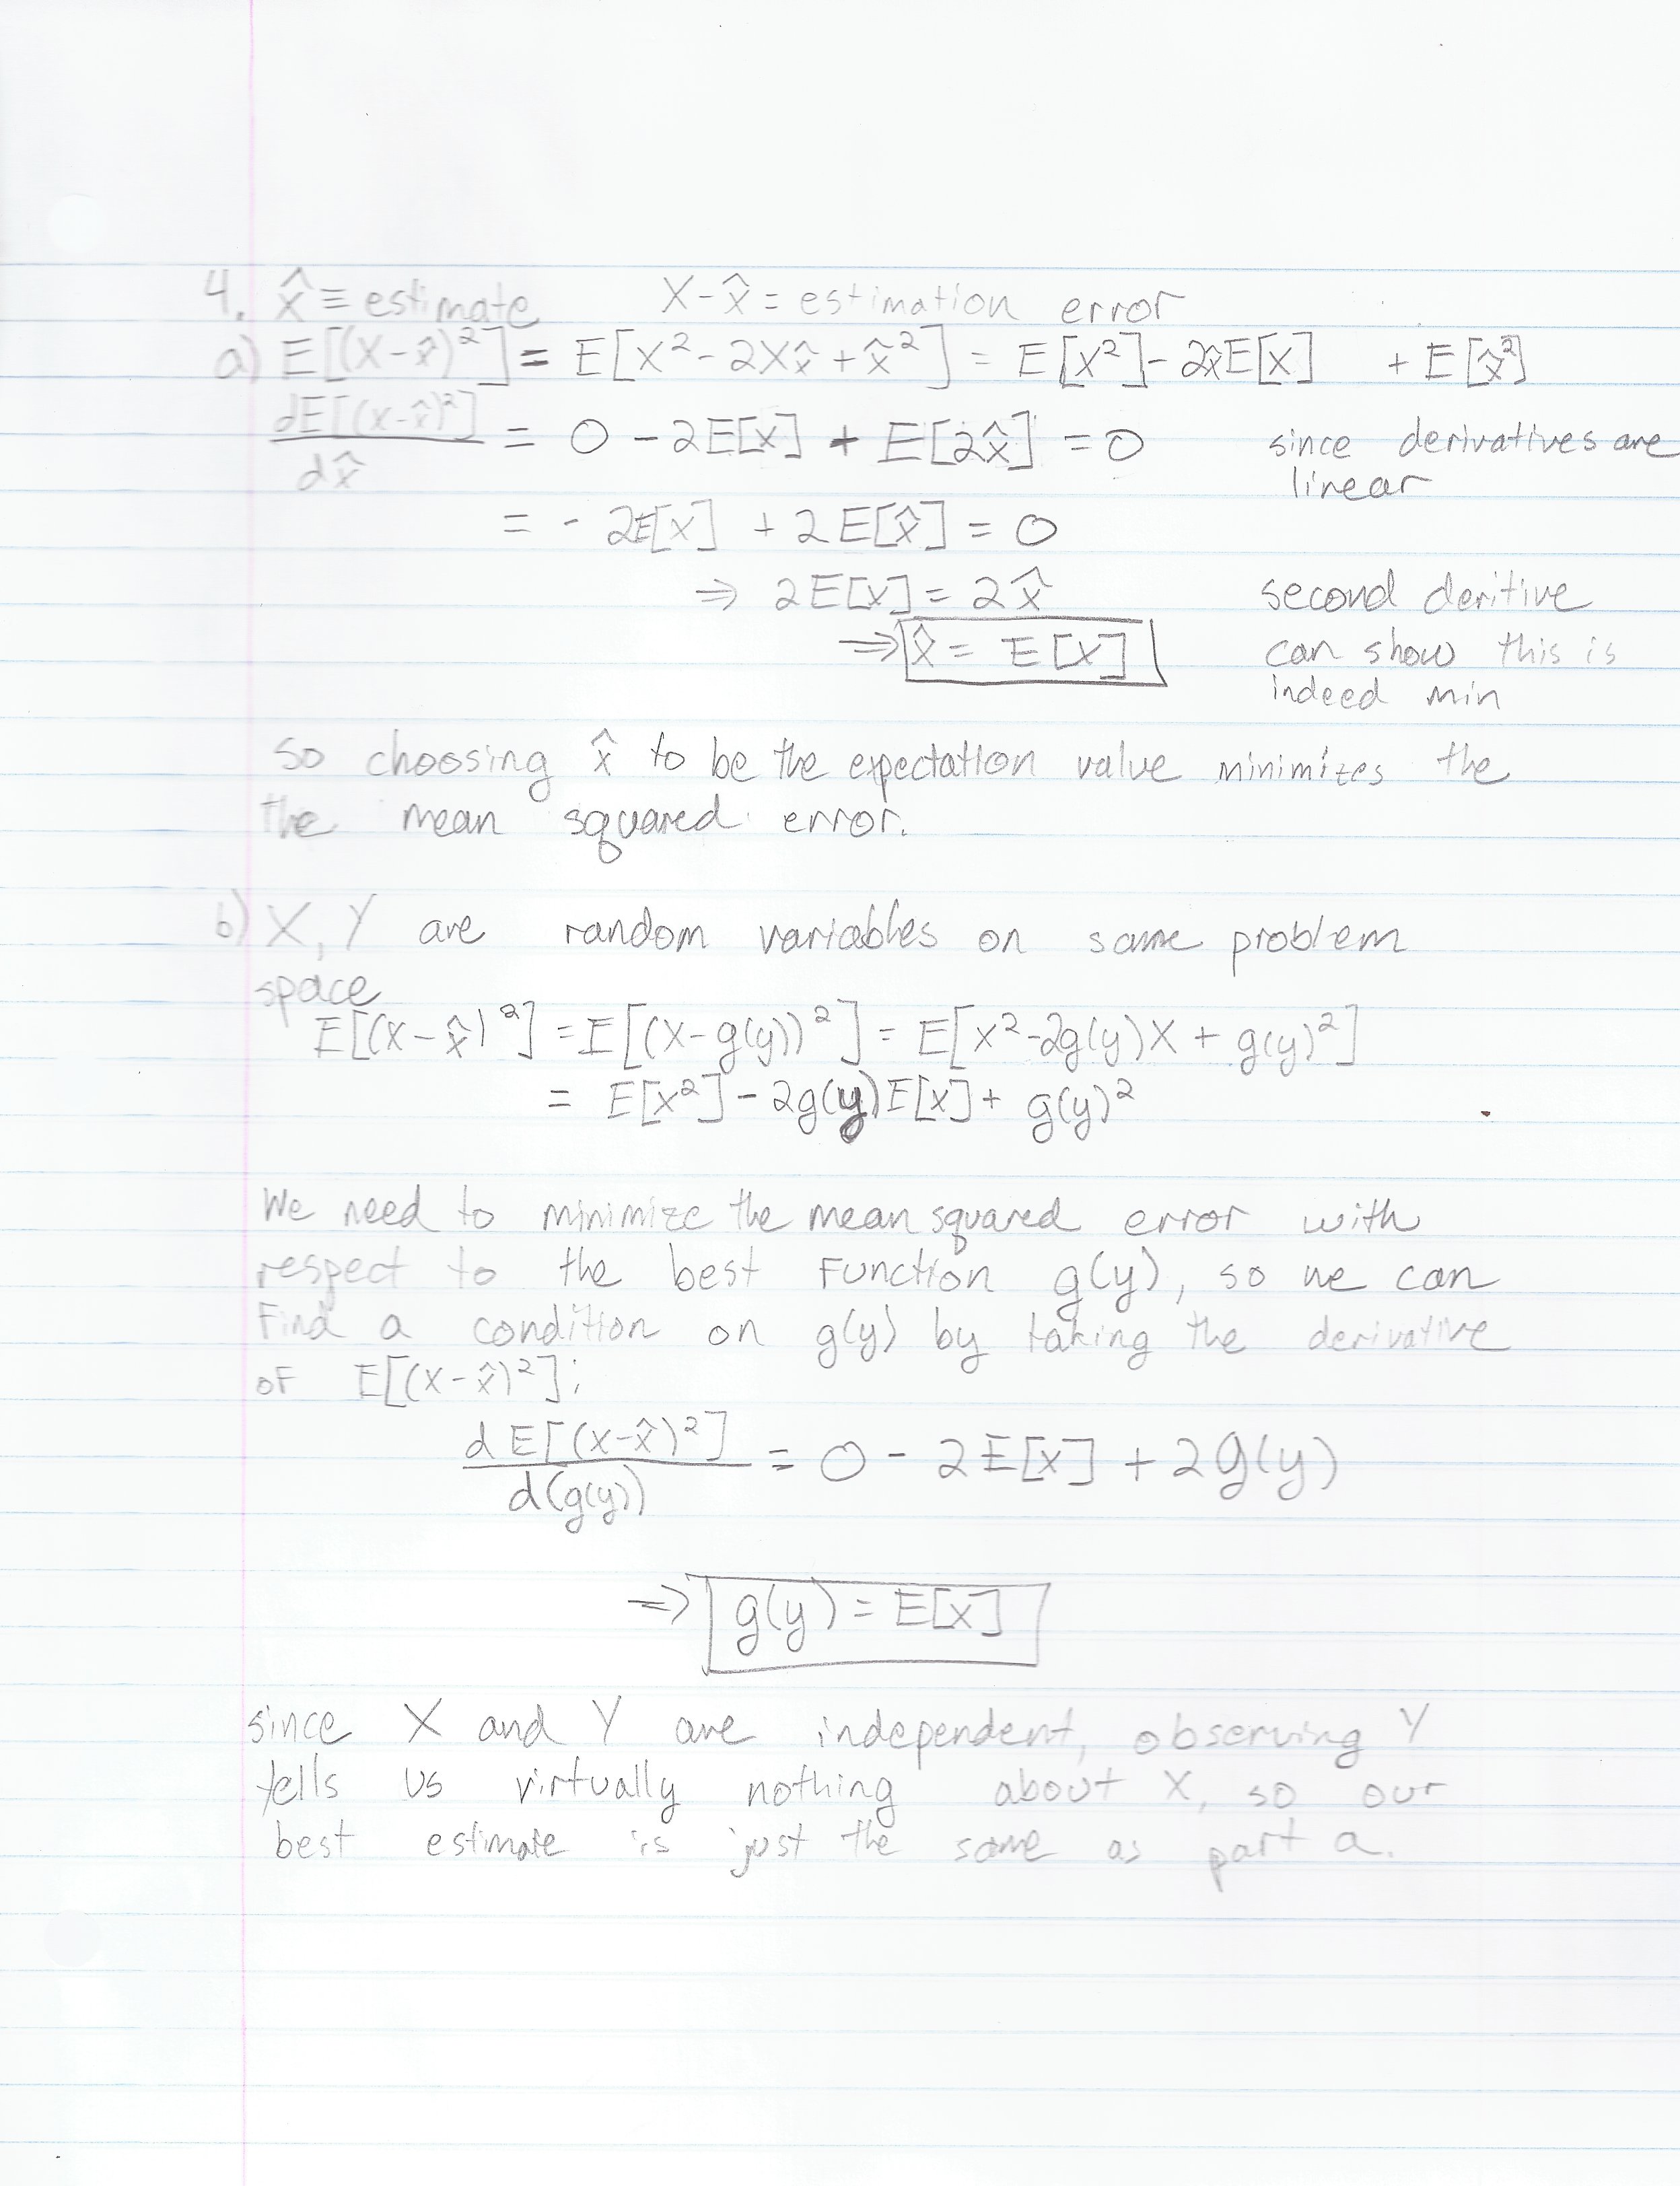 4. x̂ ≡ estimate X-x̂ = estimation error
a) E[(X-x̂)²] = E[X²-2Xx̂+x̂²] = E[X²]-2x̂E[X] + E[x̂²]
dE[(x-x̂)²]/dx̂ = 0 - 2E[x] + E[2x̂] = 0 since derivatives are
linear
= - 2E[x] + 2E[x̂] = 0
⇒ 2E[x] = 2x̂ second deritive
⇒ x̂ = E[X] can show this is
indeed min
So choosing x̂ to be the expectation value minimizes the
the mean squared error.
b) X, Y are random variables on same problem
space
E[(x-x̂)²] = E[(X-g(y))²] = E[x²-2g(y)X + g(y)²]
= E[x²] - 2g(y)E[x] + g(y)²
We need to minimize the mean squared error with
respect to the best function g(y), so we can
Find a condition on g(y) by taking the derivative
of E[(x-x̂)²]:
dE[(x-x̂)²]/d(g(y)) = 0 - 2E[x] + 2g(y)
⇒ g(y) = E[x]
since X and Y are independent, observing Y
tells us virtually nothing about X, so our
best estimate is just the same as part a.